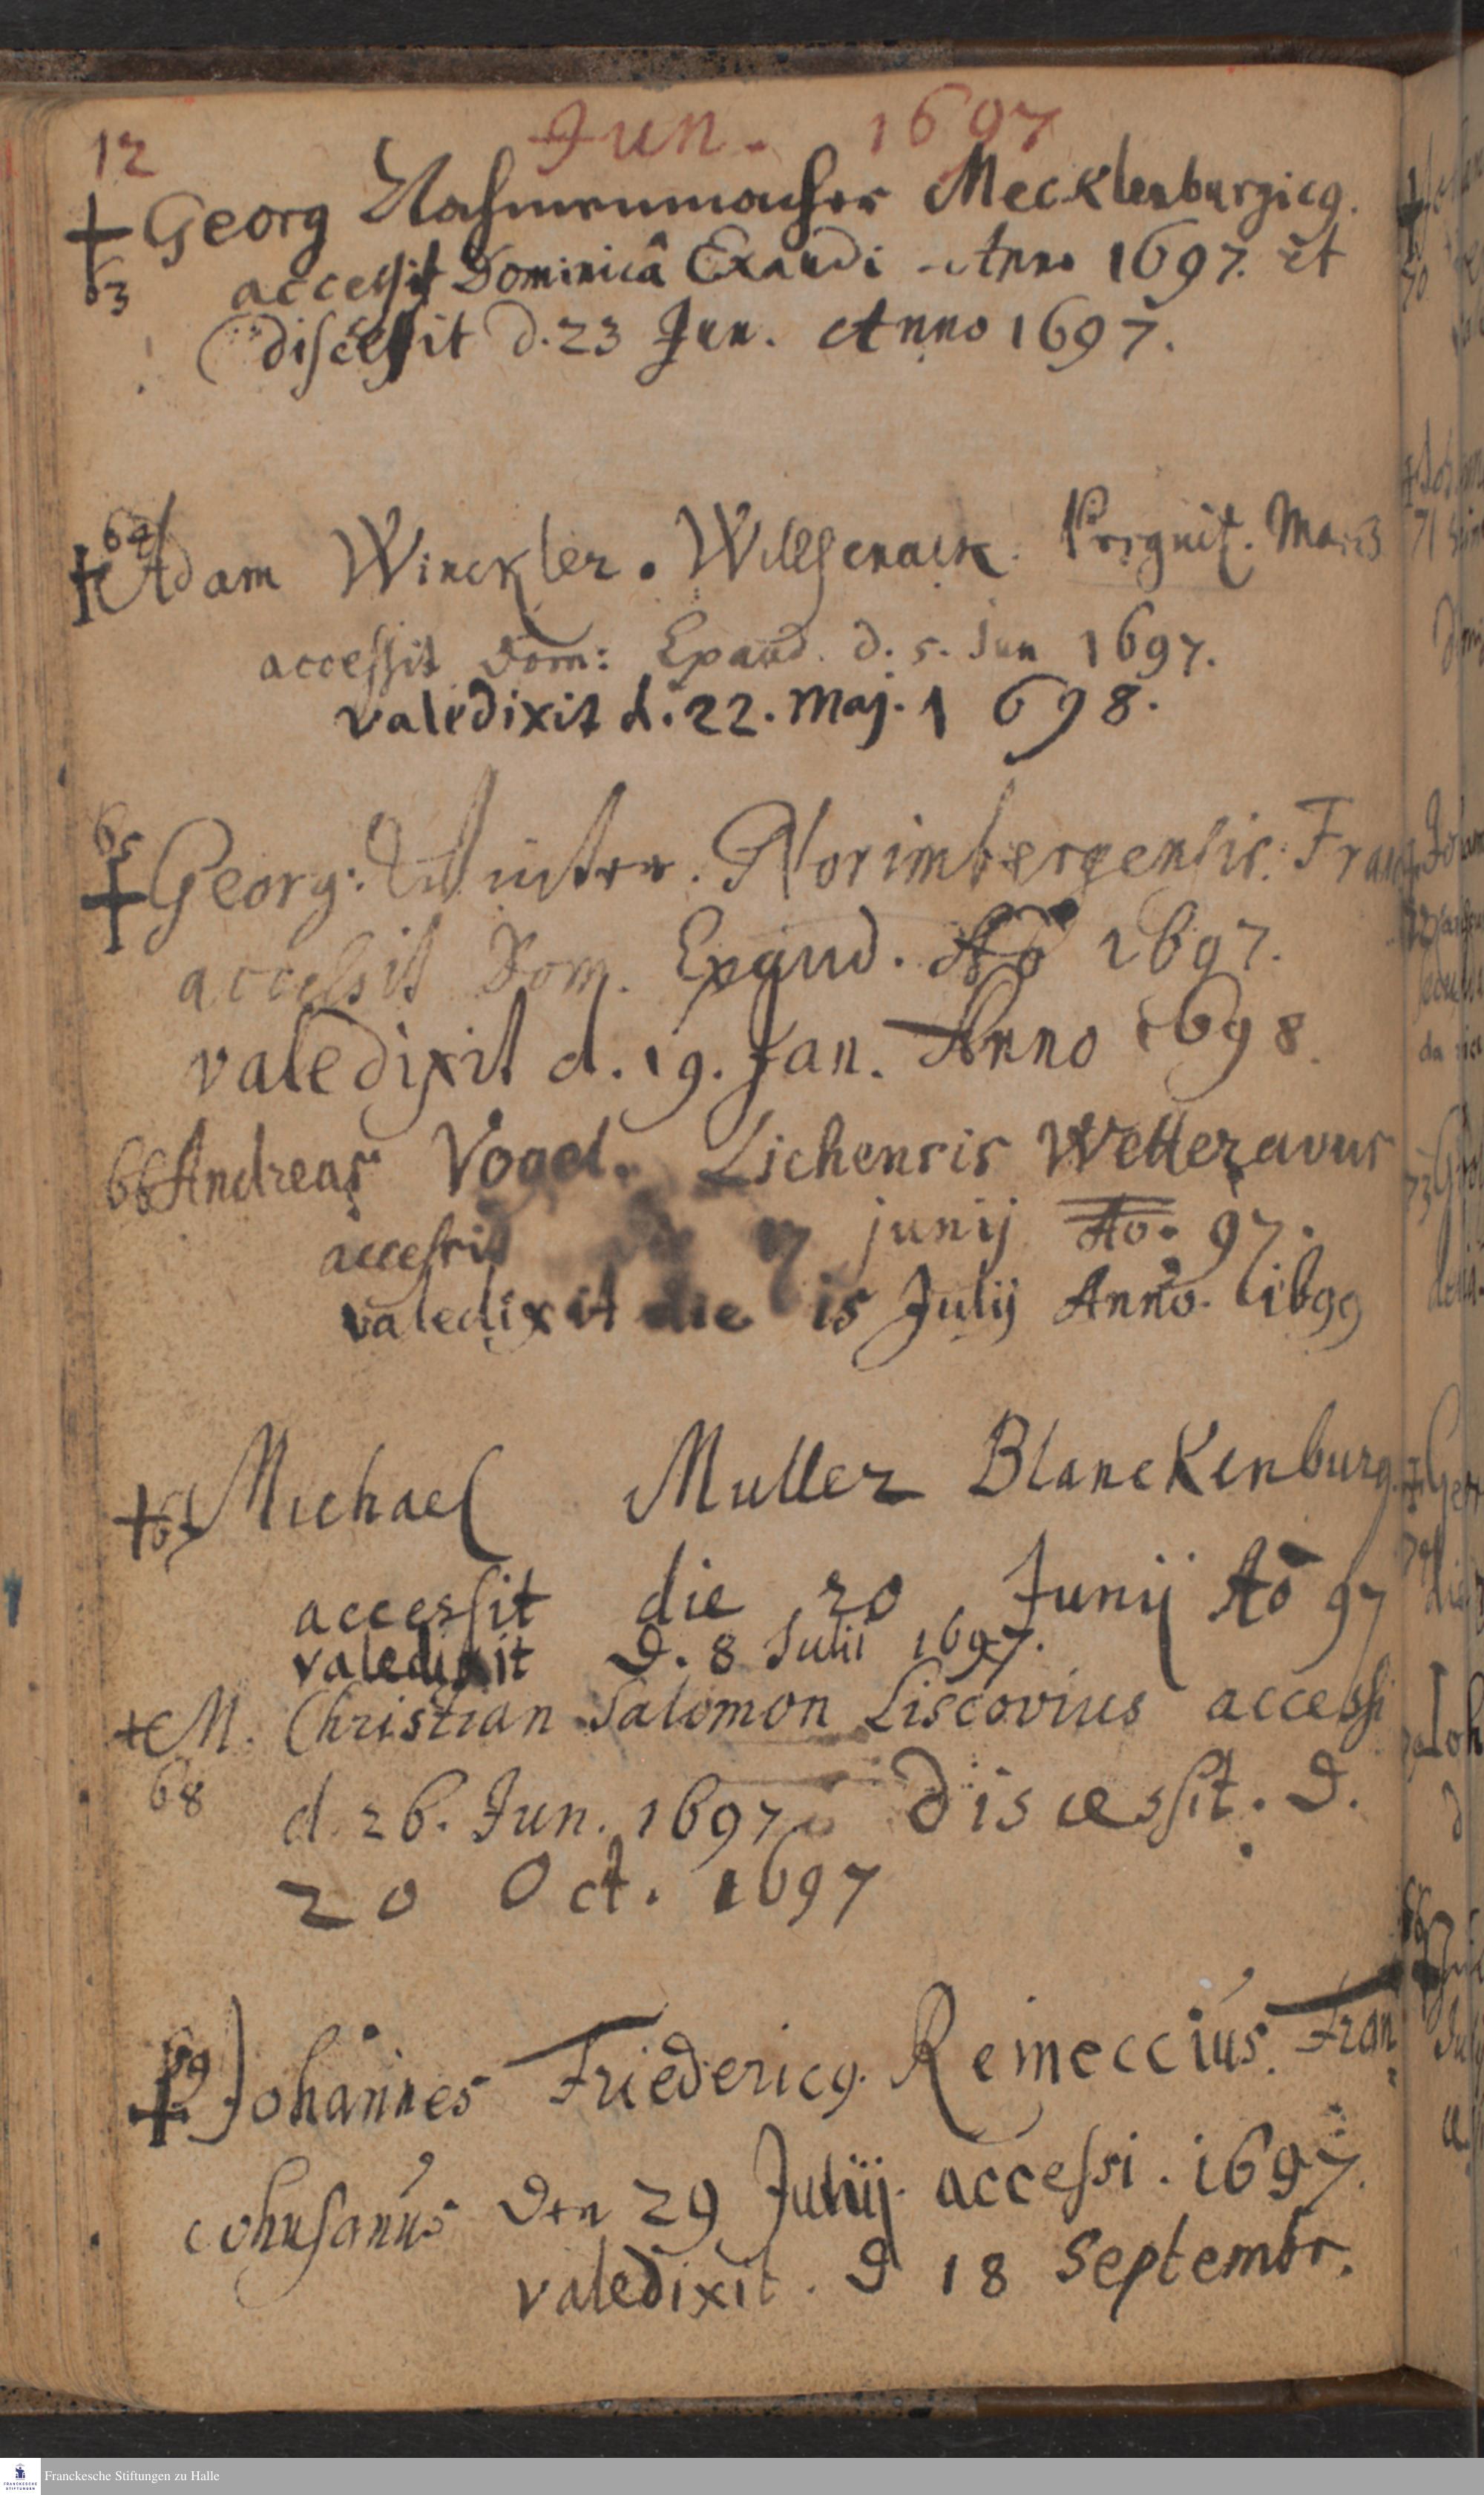 12 Jun. 1697
Georg Rahmenmacher Mecklenburgicq.
63 accessit Dominicâ Exaudi Anno 1697. et
discessit d. 23 Jun. Anno 1697.
64 Adam Winckler. Wilsenack. Prignit. March
accessit Dom: Exaud. d. 5. Jun 1697.
valedixit d. 22. Maj. 1698.
65 Georg: Norimbergensis. Franc.
accessit Dom. Exaud. Aõ 1697.
valedixit d. 19. Jan. Anno 1698.
66 Andreas Vogel. Lichensis Wetteravus
accessit 7 junij Ao. 97.
valedixit die 15 Julij Anno. 1699
67 Michael Muller Blanckenburg.
accessit die 20 Junij Aõ 97
valedixit D. 8 Julii 1697.
M. Christian Salomon Liscovius accessi
68 d. 26. Jun. 1697 discessit. D.
20 Oct. 1697
69 Johannes Friedericq. Reineccius. Fran
cohusanus den 29 Julij accessi. 1697.
valedixit. D 18 Septembr.
Franckesche Stiftungen zu Halle